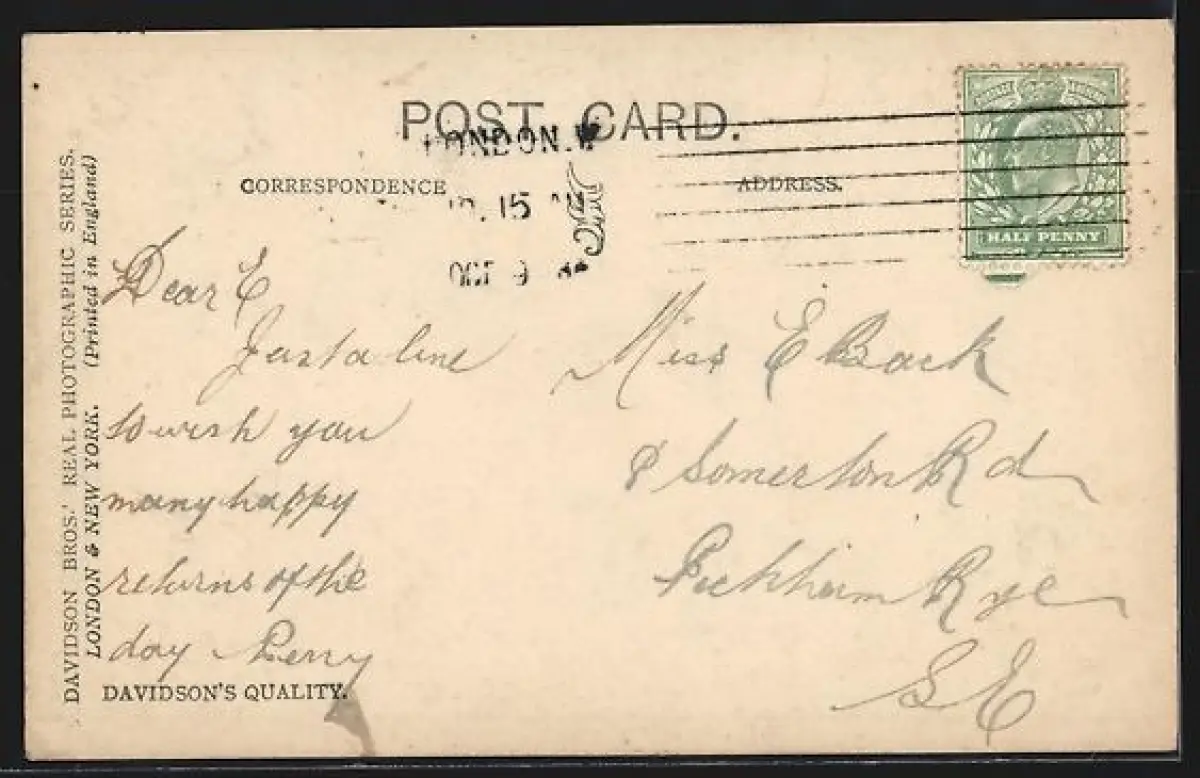 POST CARD.
LONDON.W
15
OCT 9
CORRESPONDENCE
ADDRESS.
HALF PENNY
DAVIDSON BROS.' REAL PHOTOGRAPHIC SERIES.
LONDON & NEW YORK. (Printed in England)
Dear E
Just a line
to wish you
many happy
returns of the
day Perry
DAVIDSON'S QUALITY.
Miss E Back
8 Somerton Rd
Peckham Rye
S E